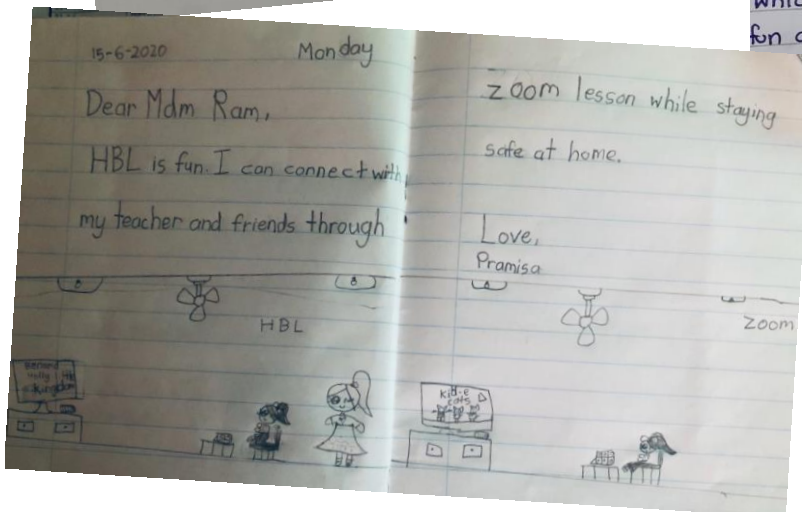 15-6-2020 Monday
Dear Mdm Ram,
HBL is fun. I can connect with
my teacher and friends through
zoom lesson while staying
safe at home.
Love,
Pramisa
HBL
Kingdom
Kid-e
cats
Zoom
fun